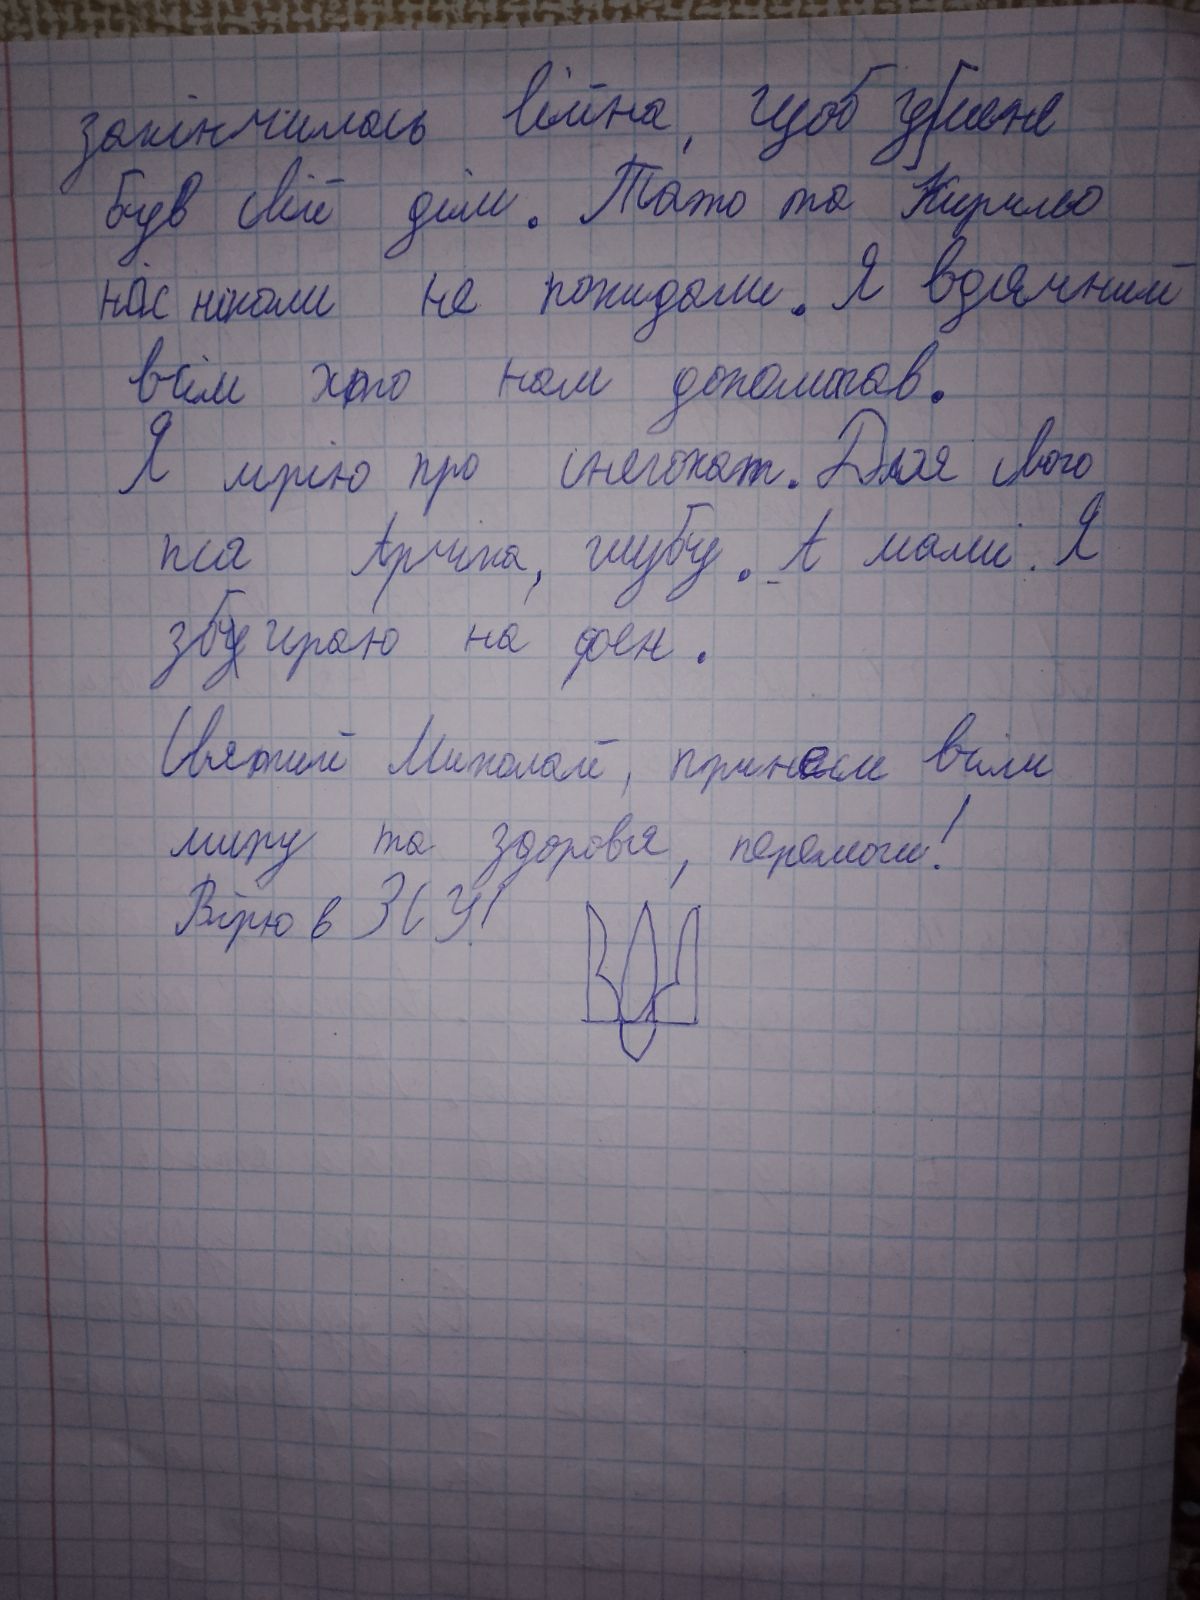 закінчилась війна, щоб у мене
був свій дім. Тато та Кирило
нас ніколи не покидали. Я вдячний
всім хто нам допомагав.
Я мрію про снегокат. Для свого
пса Арчіка, шубу. А мамі. Я
збираю на фен.
Святий Миколай, принеси всім
миру та здоровя, перемоги!
Вірю в ЗСУ!